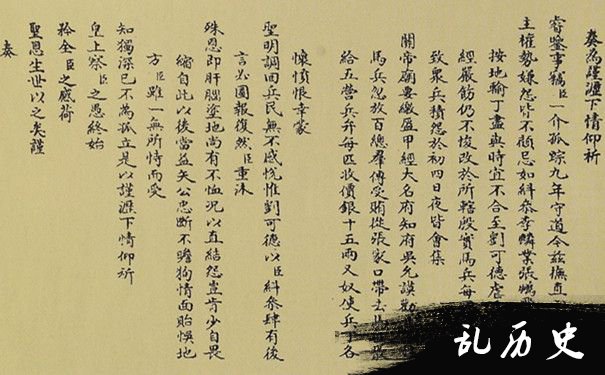 奏為謹瀝下情仰祈
睿鑒事竊臣一介孤踪九年守道今茲撫直
主權勢嫌怨皆不顧忌如糾參李麟業張鵬
按地輸丁盡與時宜不合至劉可德虐
經嚴飭仍不悛改於所轄殷實馬兵每
致衆兵積怨於初四日夜皆會集
關帝廟要繳盔甲經大名府知府吳允謨勸
馬兵忽放百總羣傳受賄從張家口帶去馬
給五營兵并每匹收價銀十五兩又奴使兵丁各
懷憤恨幸蒙
聖明調回兵民無不感悅惟劉可德以臣糾參肆有後
言必圖報復然臣重沐
殊恩即肝腦塗地尚有不恤況以直結怨豈肯少自畏
縮自此以後當益矢公忠斷不瞻狥情面貽悞地
方臣雖一無所恃而受
知獨深已不為孤立是以謹瀝下情仰祈
皇上察臣之愚終始
矜全臣之感荷
聖恩生世以之矣謹
奏
乱历史